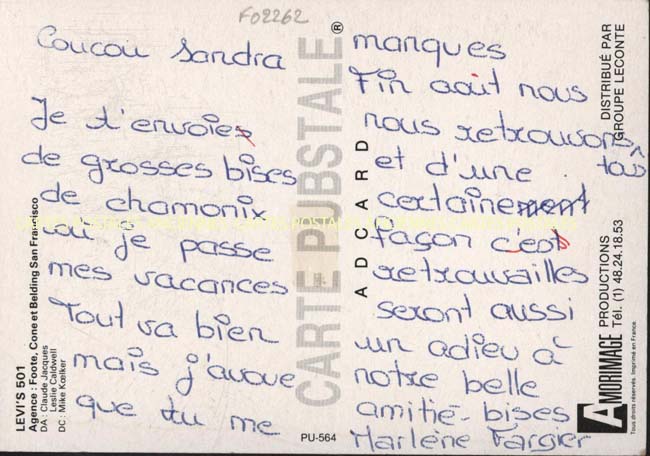 F02262
Coucou Sandra
Je t'envoies
de grosses bises
de chamonix
où je passe
mes vacances
Tout va bien
mais j'avoue
que tu me
manques
Fin août nous
nous retrouvons
tous
et d'une
certainement
façon c'est
retrouvailles
seront aussi
un adieu à
notre belle
amitié - bises
Marlène Fargier
CARTE PUBSTALE®
ADCARD
PU-564
LEVI'S 501
Agence : Foote, Cone et Belding San Francisco
DA : Claude Jacques
Leslie Caldwell
DC : Mike Kœlker
DISTRIBUÉ PAR
GROUPE LECONTE
AMORIMAGE PRODUCTIONS
Tél. (1) 48.24.18.53
Tous droits réservés. Imprimé en France